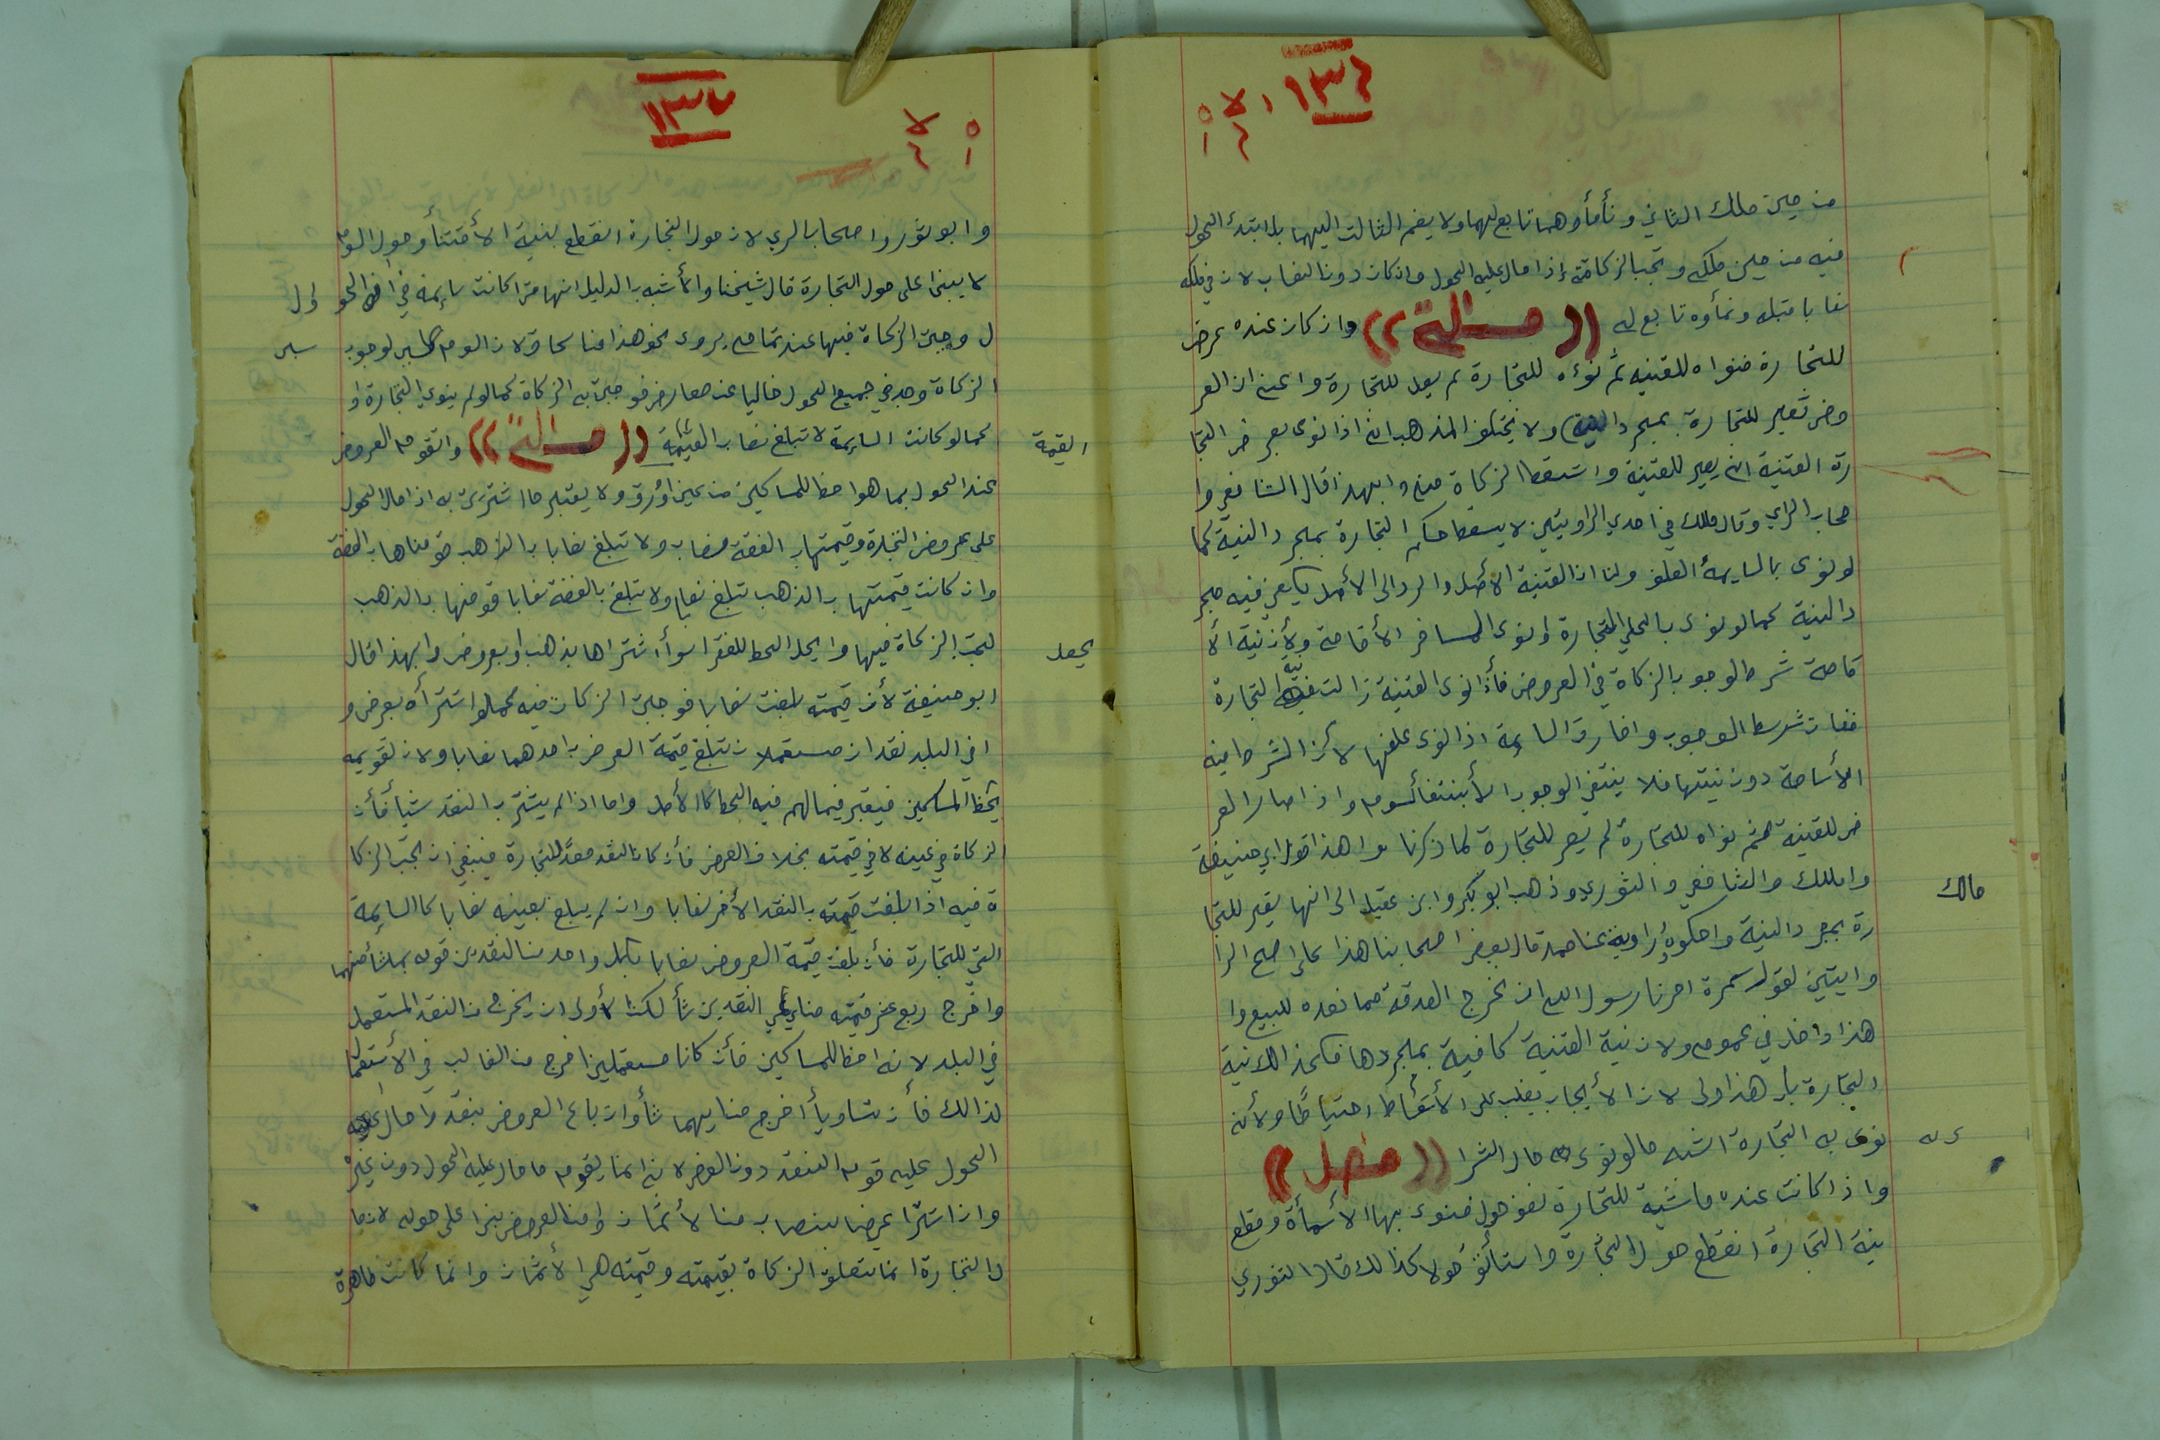 ١٣٤
من حين ملك الثاني ونمأوهما تابع لهما ولا يضم الثالث اليهما بل ابتدئ الحول
فيه من حين ملكه وتجب الزكاة فيه إذا حال عليه الحول وان كان دون النصاب لان في ملكه
نصابا قبله ونمأوه تابع له ((مسالة)) وان كان عنده عرض
للتجارة فنواه للقنيه ثم نواه للتجارة لم يصل للتجارة واعني ان العر
وض تصير للتجارة بمجرد النية ولا يختلف المذهب انه اذا نوى بعرض التجا
رة القنية انه يصير للقنية واتسقط الزكاة منه وابهذا قال الشافعي وا
صحاب الراي وقال مالك في احدي الراويتين لا يسقط حكم التجارة بمجرد النية كما
لو نوى بالسايمة العلف ولنا ان القنية الأصل والرد الى الأصل يكفي فيه مجر
د النية كما لو نوى بالحلي التجارة او نوى المسافر الأقامة ولأن نية الأ
قامة شرط لوجوب الزكاة في العروض فأذا نوى القنية زالت نية التجارة
ففات شرط الوجوب وافارق السايمة اذا نوى علفها لان الشرط فيه
الأسامة دون نيتها فلا ينتفي الوجوب الأبنتفأ السوم واذا صار العر
ض للقنية ثم نواه للتجارة لم يصر للتجارة لما ذكرنا وا هذا قول ابي حنيفة
وامالك والشافعي والثوري وذهب ابو بكر وابن عقيل الى انها يصير للتجا
مالك
رة بمجرد النية واحكوه راوية عن احمد قال بعض اصحابنا هذا على اصح الرا
وايتين لقول سمرة امرنا رسول الله ان نخرج الصدقة مما نعده للبيع وا
هذا داخل في عمومه ولان نية القنية كافية بمجردها فكذا لك نية
التجارة بل هذا اولى لان الأيجاب يغلب على الأسقاط احتياطا ولأنه
نوى به التجارة اشبه مالو نوى به حال الشرا ((فصل))
واذا كانت عنده ماشية للتجارة نصف حول فنوى بها الأسأمة وقطع
نية التجارة انقطع حول التجارة واستأنف حولا كذالك قال الثوري
١٣٥
وابو ثور واصحاب الري لان حول التجارة انقطع بنية الأقتنأ وحول السوم
لا يبنى على حول التجارة قال شيخنا والأشبه بالدليل انها متا كانت سايمة في اول الحو
ل وجبة الزكاة فيها عند تمامه يروى نحو هذا عن اسحاق لان السوم سبب لوجوب
الزكاة وجد في جميع الحول خاليا عن معارض فوجبة به الزكاة كما لو لم ينوي التجارة او
كما لو كانت السايمة لا تبلغ نصاب القيمة ((مسالة)) واتقوم العروض
القيمة
عند الحول بما هوا حظ للمساكين من عين اورق ولا يعتبر ما اشتريت به اذا حال الحول
على عروض التجارة وقيمتها بالفضة نصاب ولا تبلغ نصابا بالذهب قومناها بالفضة
وان كانت قيمتها بالذهب تبلغ نصابا ولا تبلغ بالفضة نصابا قومنها بالذهب
لتجب الزكاة فيها وايحل الحظ للفقرا سوأ اشتراها بذهب او بعروض وابهذا قال
يحصل
ابو حنيفة لأن قيمته بلغت نصابا فوجبت الزكات فيه كما لوا اشترأه بعرض و
افي البلد نقدان مستعملان تبلغ قيمة العرض باحدهما نصابا ولان تقويمه
لحظ المساكين فيعتبر فيما لهم فيه الحظ كا الأصل واما اذا لم يشتر بالنقد شيأ فأن
الزكاة في عينه لا في قيمته بخلاف العرض فأن كان النقد معد للتجارة فينبغي ان تجب الزكا
ة فيه اذا بلغت قيمته بالنقد الأخر نصابا وان لم يبلغ بعينه نصابا كا السايمة
التي للتجارة فأن بلغت قيمة العروض نصابا بكل واحد من النقدين قومه بما شأ منهما
واخرج ربع عشر قيمته من اي النقدين شأ لكن الأولى ان يخرج من النقد المستعمل
في البلد لانه احظ للمساكين فأن كانا مستعملين اخرج من الغالب في الأستعما
لذالك فأن تساويأ اخرج من ايهما شأ وان باع العروض بنقد وا حال عليه
الحول عليه قوم النقد دون العرض لان انما يقوم ما حال عليه الحول دون غيره
واذا اشترا عرضا بنصاب من الأثمان او من العروض بنا على حوله لان ما
ل التجارة انما تتعلق الزكاة بقيمته وقيمته هي الأثمان وانما كانت ظاهرة